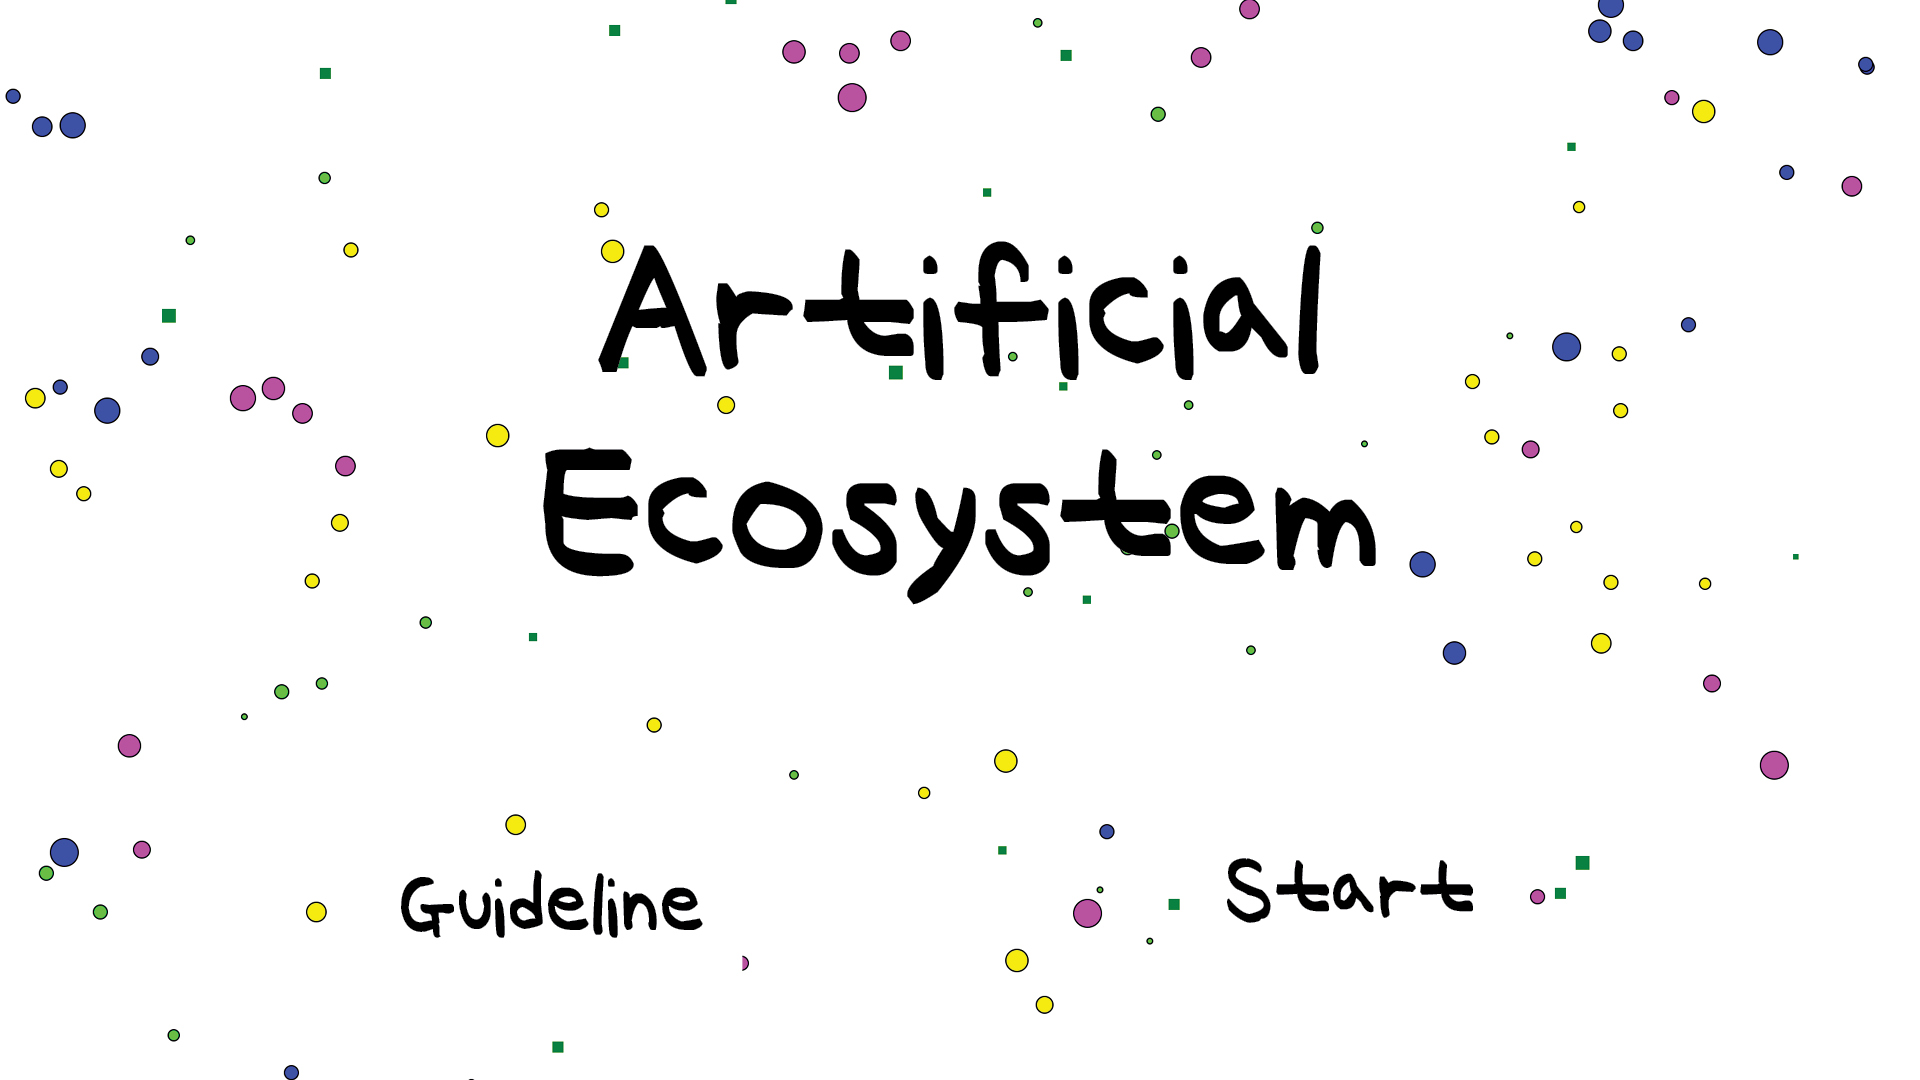 Artificial
Ecosystem
Guideline
Start